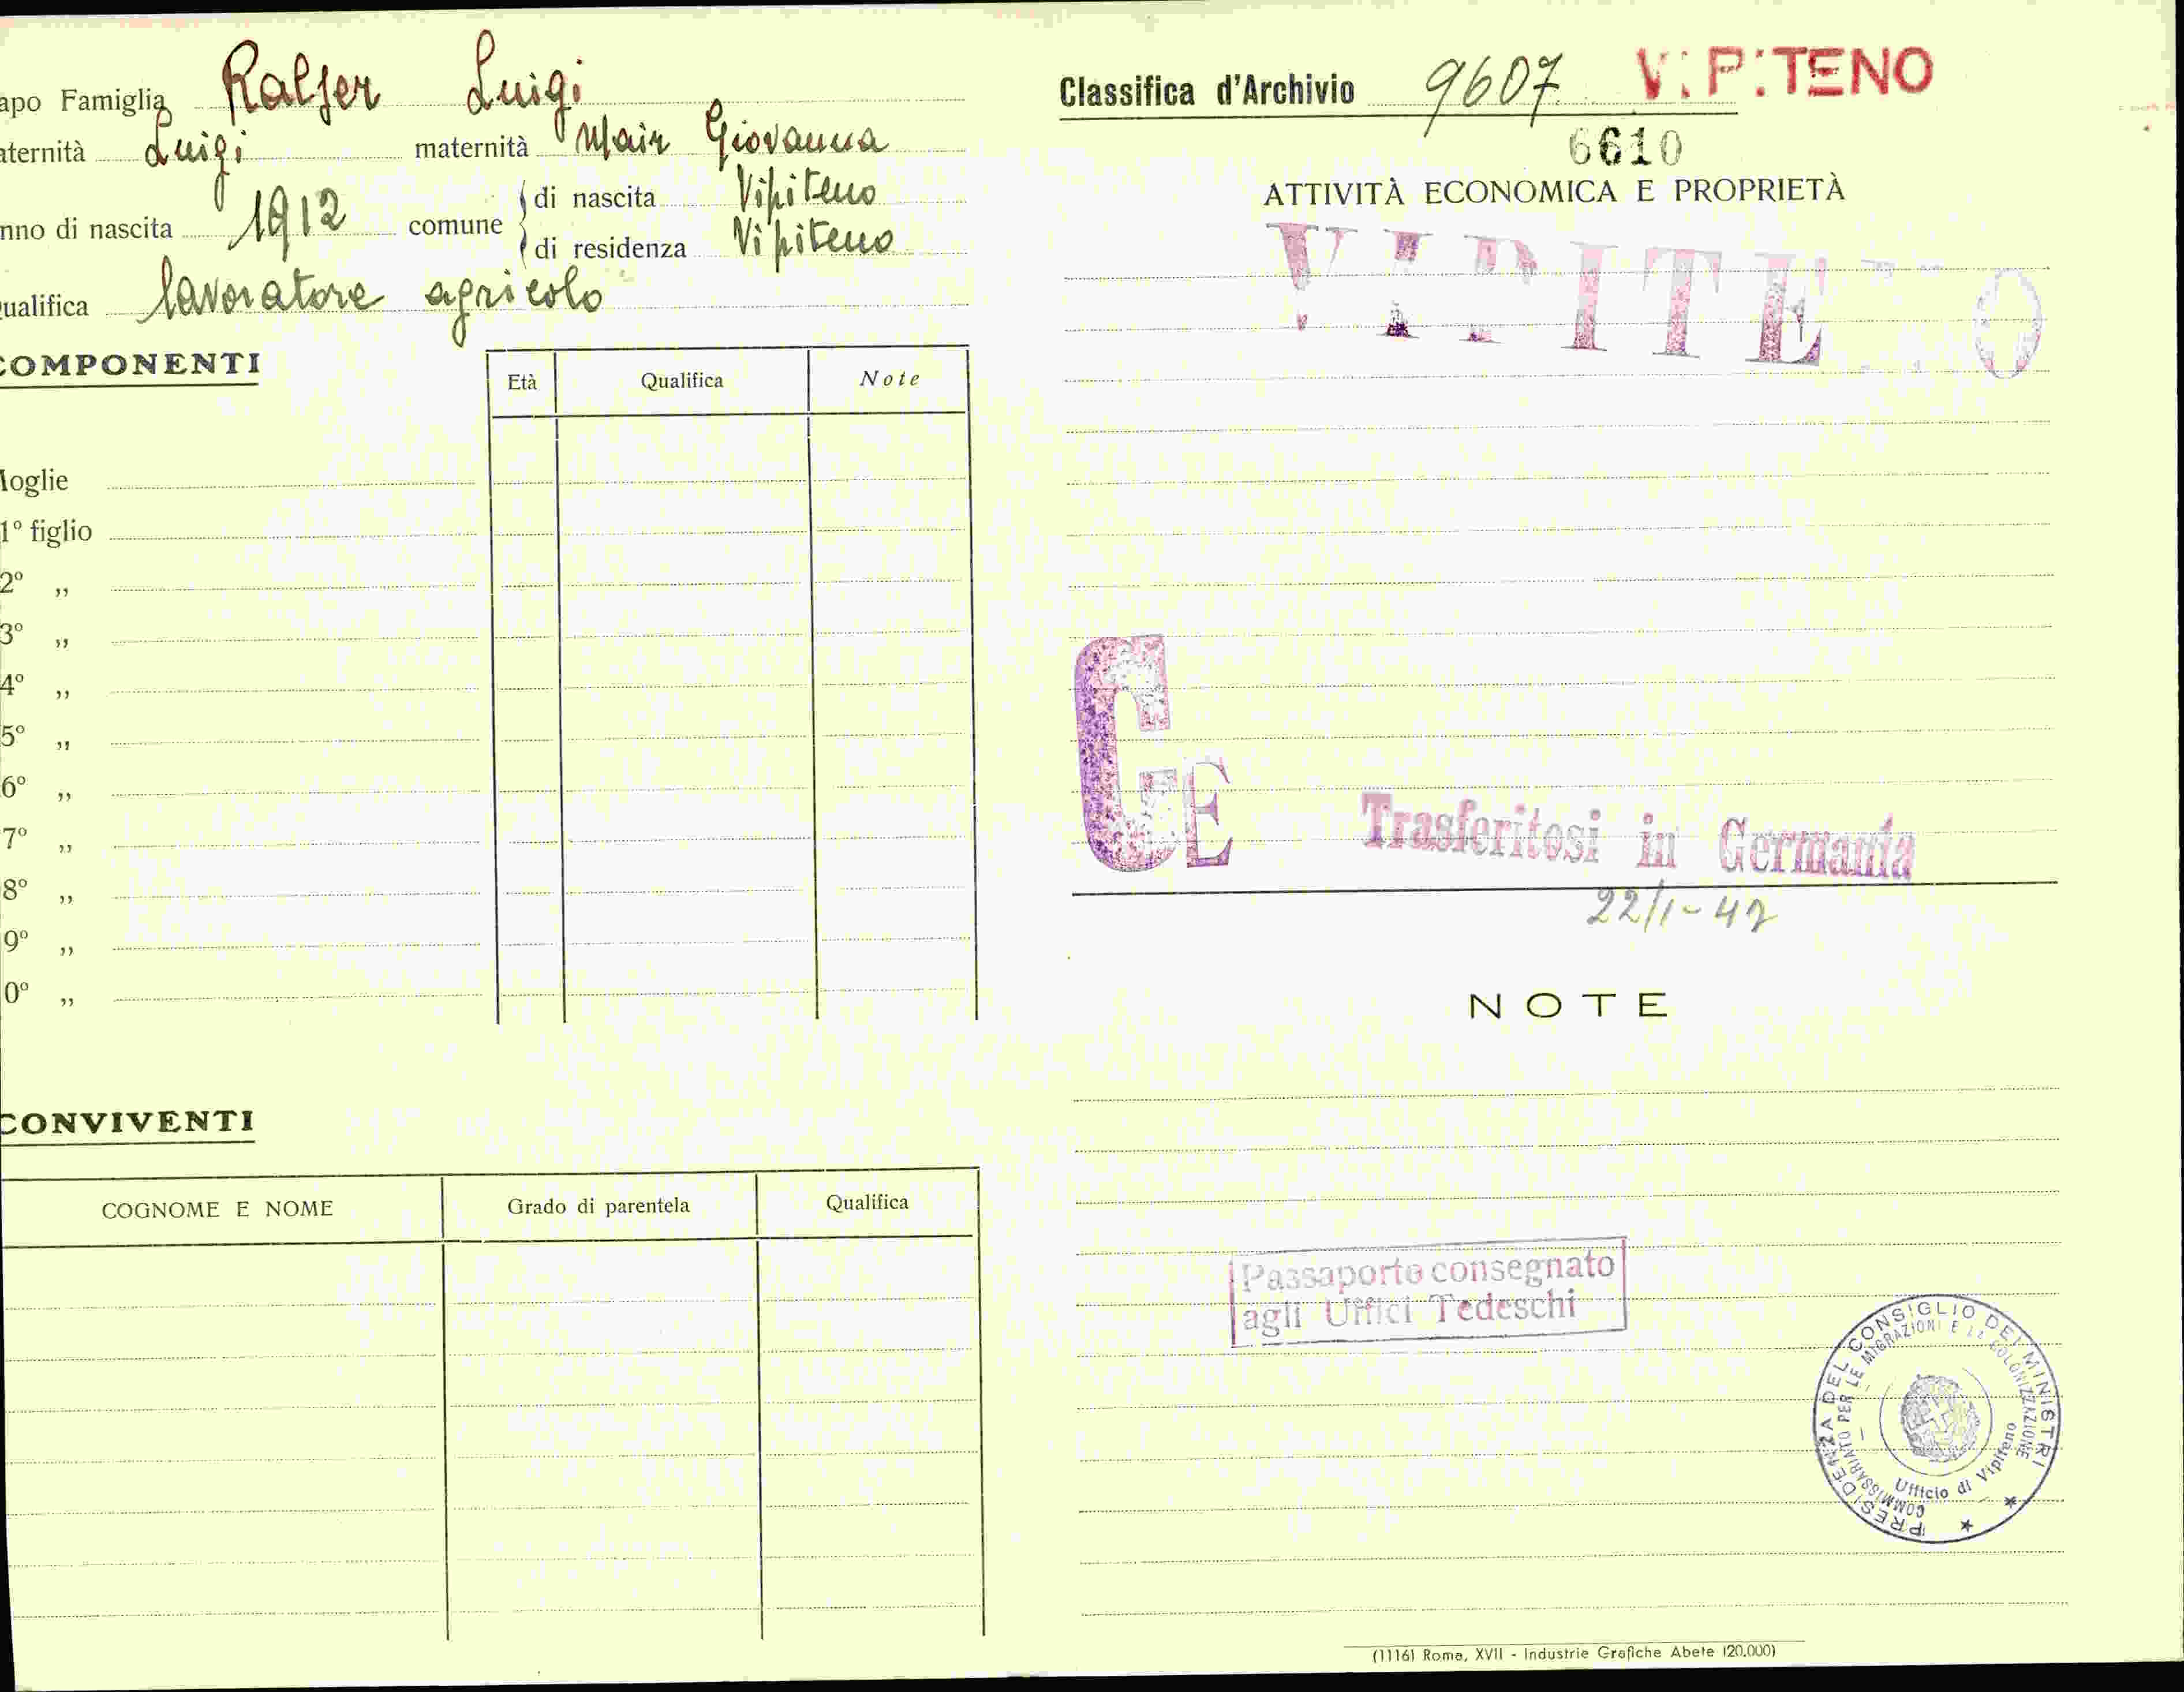 apo Famiglia Ralser Luigi
aternità Luigi maternità Mair Giovanna
nno di nascita 1912 comune di nascita Vipiteno
di residenza Vipiteno
ualifica lavoratore agricolo
COMPONENTI
Età Qualifica Note
Moglie
1º figlio
2º „
3º „
4º „
5º „
6º „
7º „
8º „
9º „
0º „
CONVIVENTI
COGNOME E NOME Grado di parentela Qualifica
Classifica d'Archivio 9607 VIPITENO
6610
ATTIVITÀ ECONOMICA E PROPRIETÀ
G E
Trasferitosi in Germania
NOTE
Passaporto consegnato
agli Uffici Tedeschi
PRESIDENZA DEL CONSIGLIO DEI MINISTRI
COMMISSARIATO PER LE MIGRAZIONI E LA COLONIZZAZIONE
Ufficio di Vipiteno
(1116) Roma, XVII - Industrie Grafiche Abete (20.000)